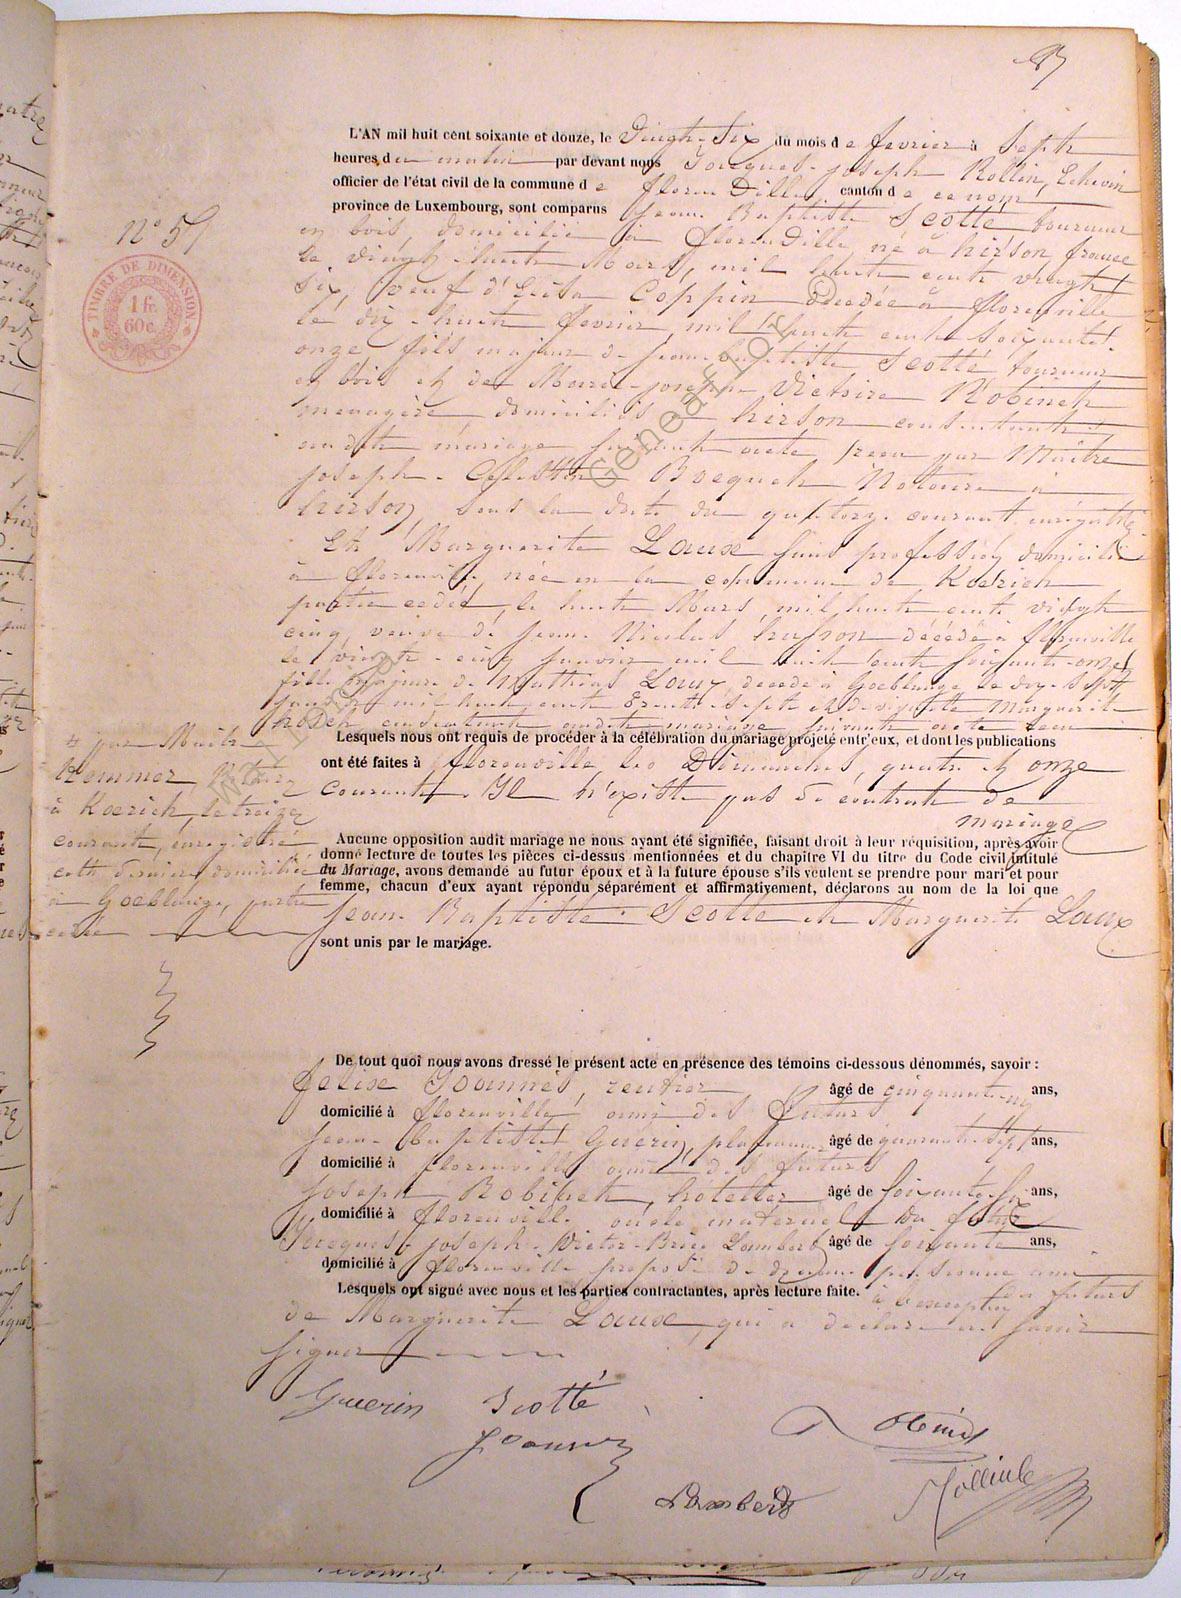 n° 5
TIMBRE DE DIMENSION
1 fr.
60 c.
L'AN mil huit cent soixante et douze, le Vingt-Six du mois de fevrier à Sept
heures du matin par devant nous Jacques-joseph Rollin, Echevin
officier de l'état civil de la commune de florenville canton de ce nom
province de Luxembourg, sont comparus Jean Baptiste Scotté tourneur
en bois, domicilié à florenville né à hirson france
le vingt-huit Mars, mil huit cent vingt
six, veuf d'Elisa Coppin decedée à florenville
le dix-huit fevrier, mil huit cent soixante et
onze fils majeur de jean baptiste Scotté tourneur
en bois et de Marie-josephe Victoire Robinet
menagère domiciliés à hirson consentants
audit mariage suivant acte recu par Maître
joseph-Célestin Bocquet Notaire à
hirson, sous la date du quatorze courant enregistré
Et Marguerite Laux sans profession domiciliée
à florenville née en la commune de Koerich
partie cedée, le huit Mars mil huit cent vingt
cinq, veuve de jean Nicolas husson décédé à florenville
le vingt-cinq janvier mil huit cent soixante-onze
fille majeure de Mathias Laux, decedé à Goeblange le dix-sept
mil huit cent trente-sept et de Marguerite
consentante audit mariage suivant acte recu
Lesquels nous ont requis de procéder à la célébration du mariage projeté entr'eux, et dont les publications
ont été faites à florenville les Dimanches, quatre et onze
courant. Il n'existe pas de contrat de
mariage
# par Maitre
Notaire
à Koerich, le treize
courant, enregistré
cette dernière domiciliée
à Goeblange, partie
cedée
Aucune opposition audit mariage ne nous ayant été signifiée, faisant droit à leur réquisition, après avoir
donné lecture de toutes les pièces ci-dessus mentionnées et du chapitre VI du titre du Code civil intitulé
du Mariage, avons demandé au futur époux et à la future épouse s'ils veulent se prendre pour mari et pour
femme, chacun d'eux ayant répondu séparément et affirmativement, déclarons au nom de la loi que
Jean-Baptiste Scotté et Marguerite Laux
sont unis par le mariage.
De tout quoi nous avons dressé le présent acte en présence des témoins ci-dessous dénommés, savoir :
felix Joannes, rentier âgé de cinquante ans,
domicilié à florenville ami des futurs
jean-baptiste Guérin, âgé de quarante-sept ans,
domicilié à florenville ami des futurs
joseph Robinet, hôtelier âgé de soixante-six ans,
domicilié à florenville oncle maternel du futur
Jacques-joseph-Victor-Brice Lambert âgé de soixante ans,
domicilié à florenville preposé de douane pensionné ami
Lesquels ont signé avec nous et les parties contractantes, après lecture faite. à l'exception des futurs
de Marguerite Laux, qui a declaré ne savoir
signer
Guerin Scotté
Joannes
Lambert
www.
Geneaflor ©